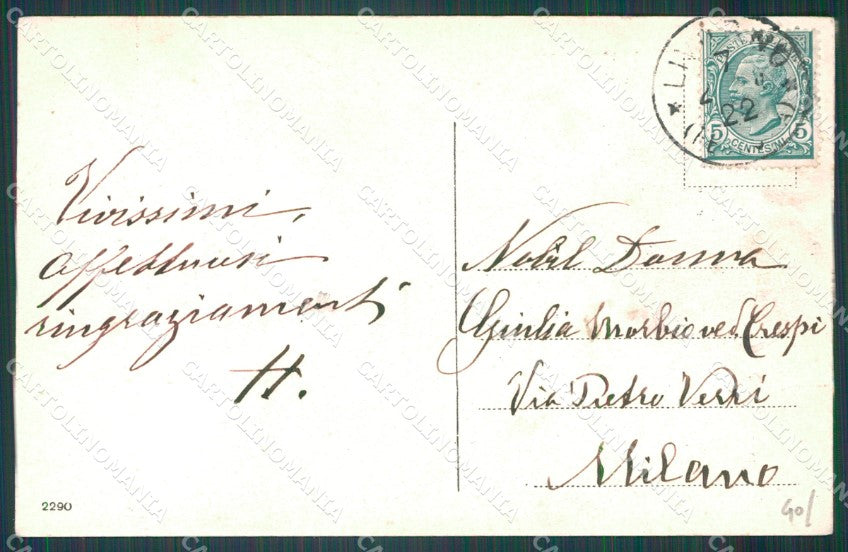 Vivissimi,
affettuosi
ringraziamenti
H.
2290
POSTE ITALIANE
5 5
CENTESIMI
22
Nobil Donna
Giulia Morbio ved Crespi
Via Pietro Verri
Milano
90/
CARTOLINOMANIA